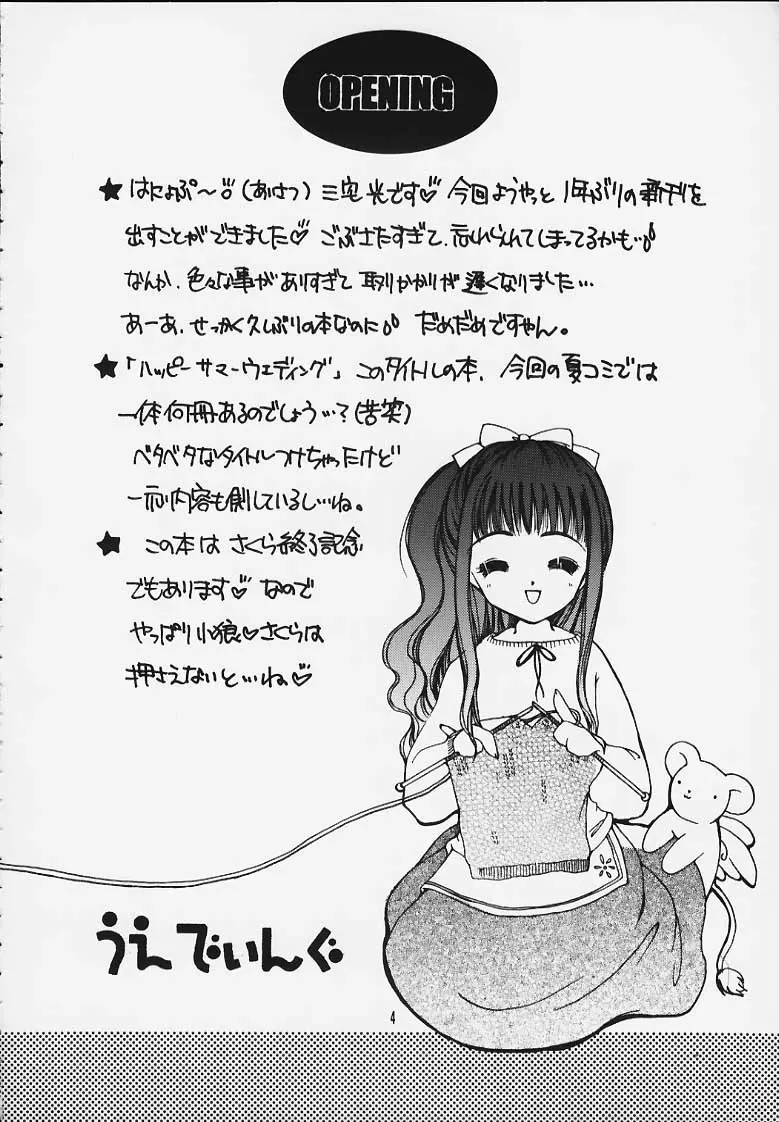 OPENING
★ はにょぷ〜♡ (あいさつ) 三宅光です♡ 今回ようやっと 1年ぶりの新刊を
出すことができました♡ ごぶさたすぎて、忘れられてしまってるかも…
なんか、色々な事がありすぎて 取りかかりが遅くなりました…
あーあ、せっかく久しぶりの本なのに だめだめですやん。
★ 「ハッピーサマーウエディング」 このタイトルの本、今回の夏コミでは
一体何冊あるのでしょう…?(苦笑)
ベタベタなタイトルつけちゃったけど
一応内容も側しているし…ね。
★ この本は さくら終了記念
でもあります♡ なので
やっぱり小狼♡さくらは
押さえないと…ね♡
うえでいんぐ
4